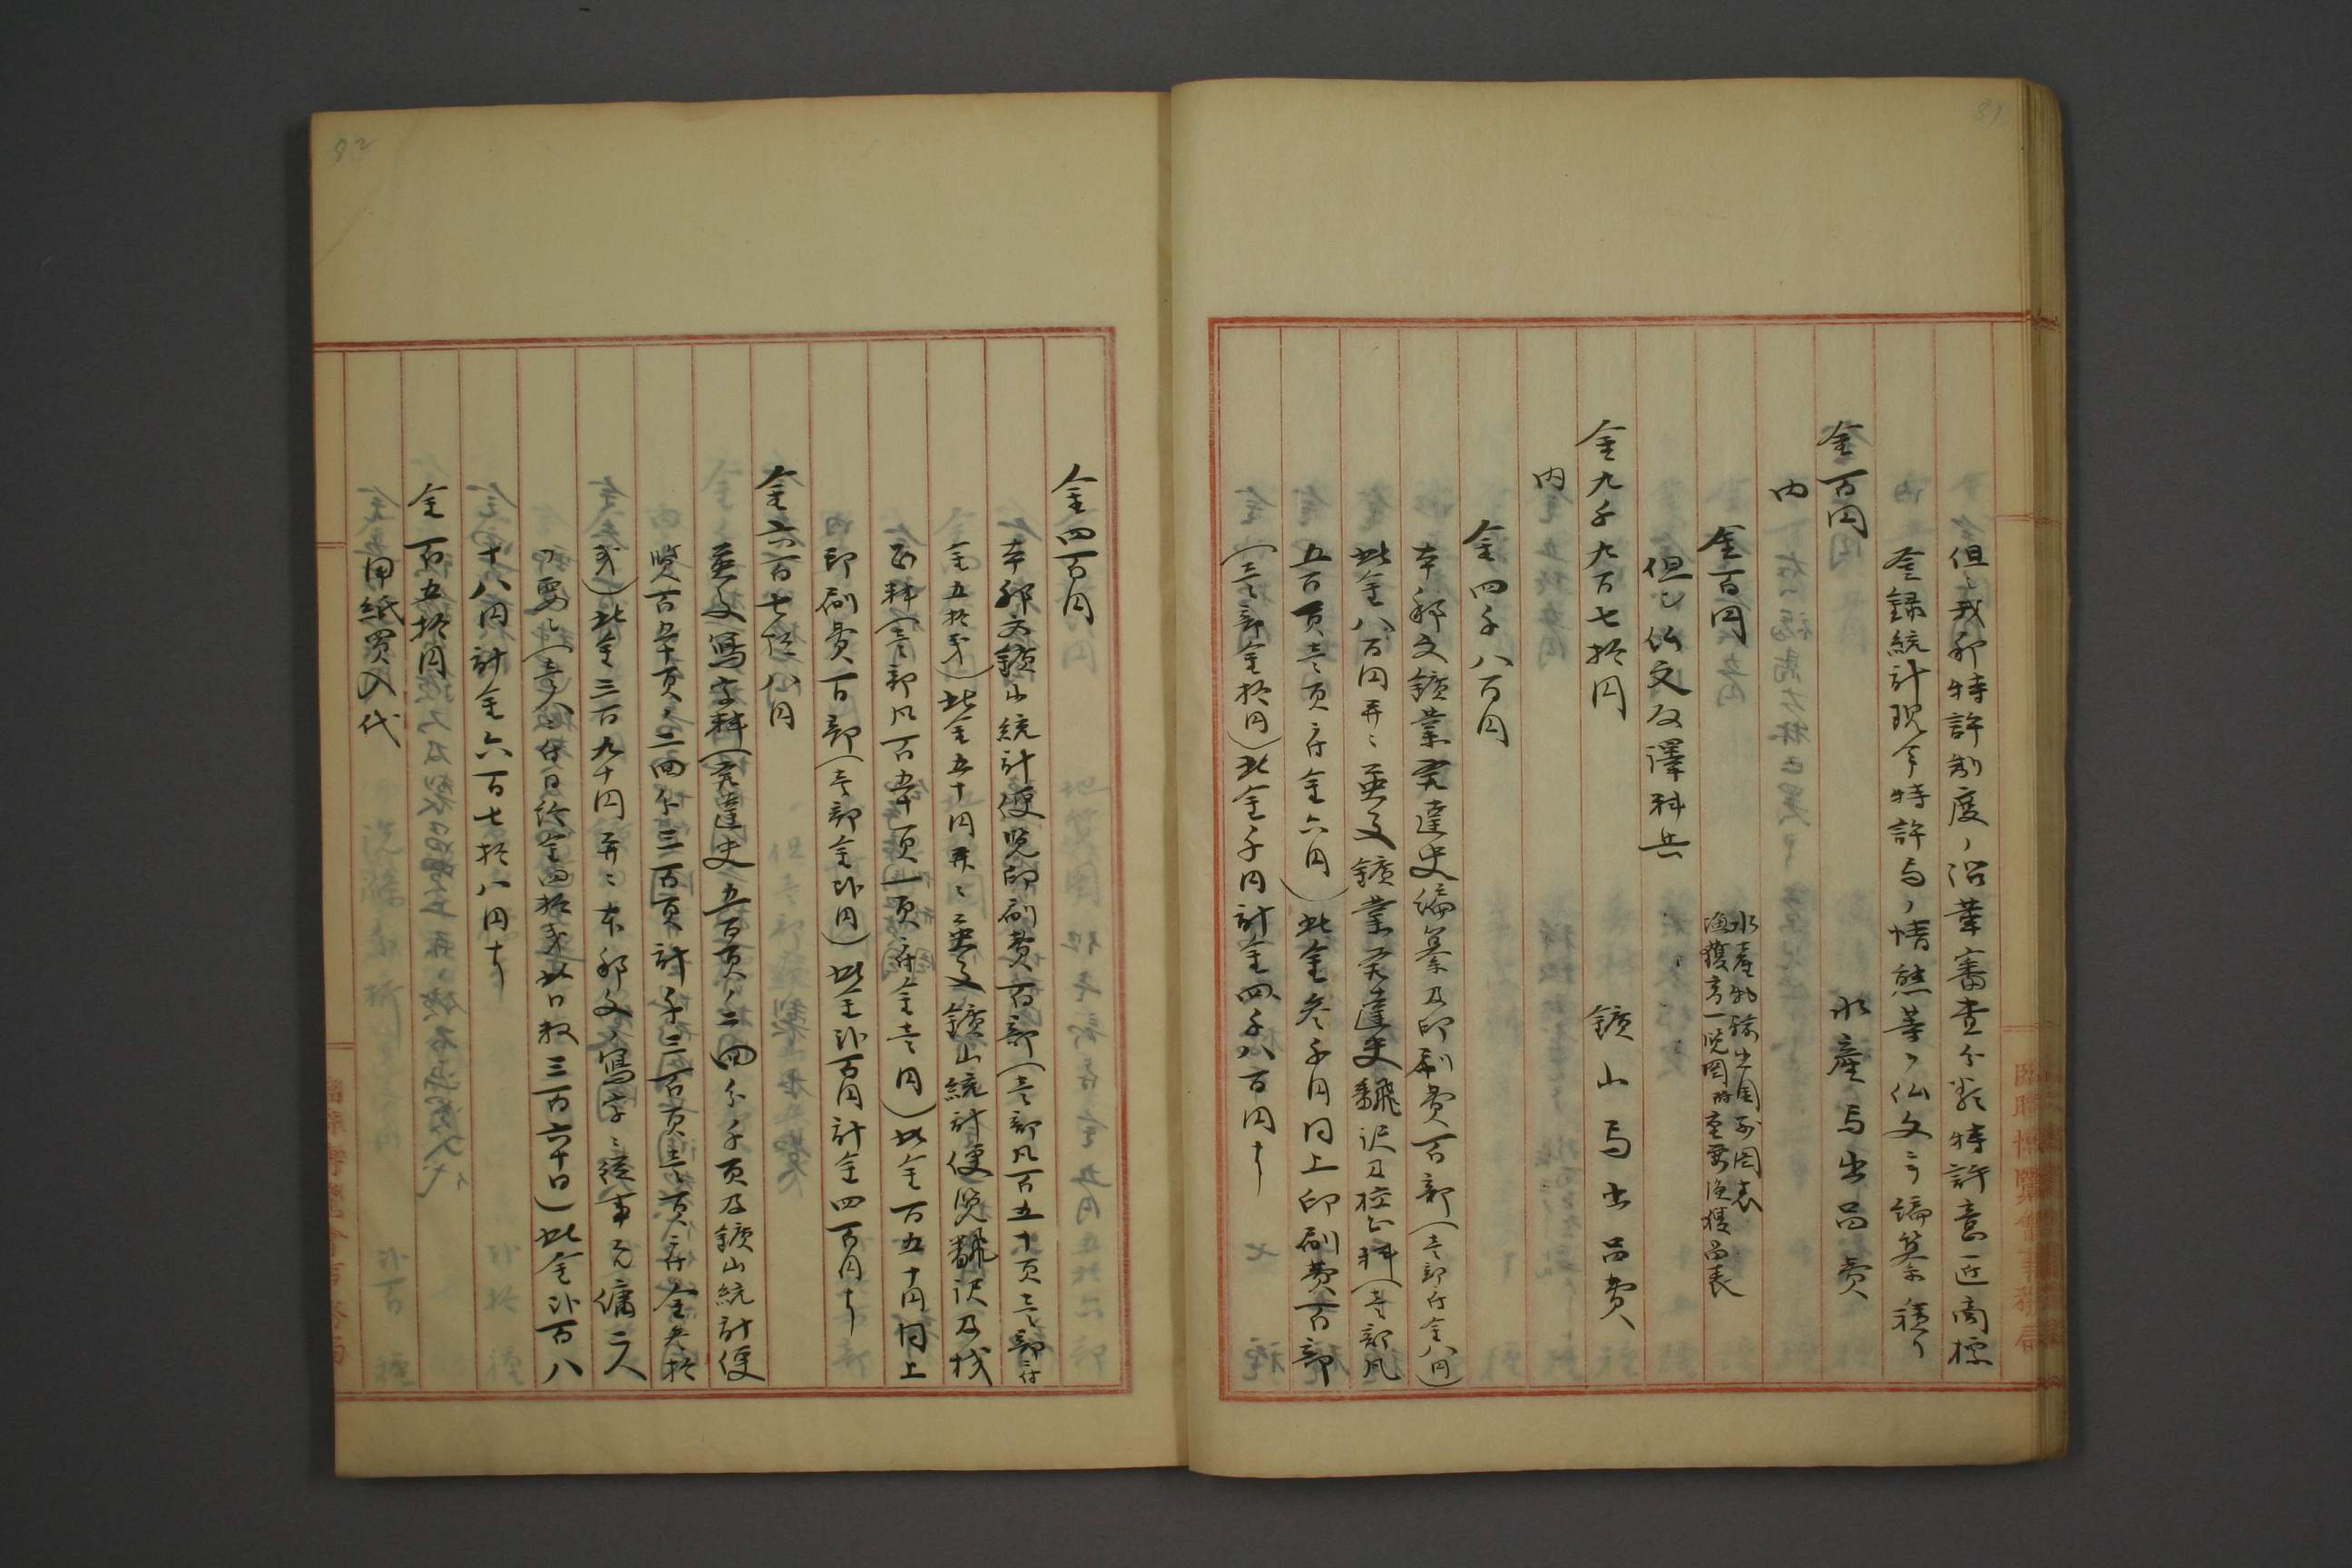 81
但シ我邦特許制度ノ沿革審査分類特許意匠商標
登録統計現今特許局ノ情態等ヲ仏文ニテ編纂ノ積リ
金百円 水産局出品費
内
金百円
水産物輸出国別図表
漁獲高一覧図
但シ仏文反譯料共
金九千九百七拾円 鑛山局出品費
内
金四千八百円
本邦文鑛業発達史編纂及印刷費百部(壱部ニ付金八円)
此金八百円并ニ英文鑛業発達史飜訳及校正料(壱部凡
五百頁壱頁ニ付金六円)此金参千円同上印刷費百部
(壱部金拾円)此金千円計金四千八百円ナリ
82
金四百円
本邦文鑛山統計便覧印刷費百部(壱部凡百五十頁壱部ニ付
金五拾銭)此金五十円并ニ英文鑛山統計便覧飜訳及校
正料(壱部凡百五十頁一頁ニ付金壱円)此金百五十円同上
印刷費百部(壱部金弐円)此金弐百円計金四百円ナリ
金六百七拾八円
英文写字料(発達史五百頁ノ二回分千頁及鑛山統計便
覧百五十頁ノ二回分三百頁計千三百頁壱頁ニ付金参拾
銭)此金三百九十円并ニ本邦文ノ写字ニ従事スル傭二人
ヲ要シ(壱人ニ付日給金四拾銭此日数三百六十日)此金弐百八
十八円計金六百七拾八円ナリ
金百五拾円
用紙買入代